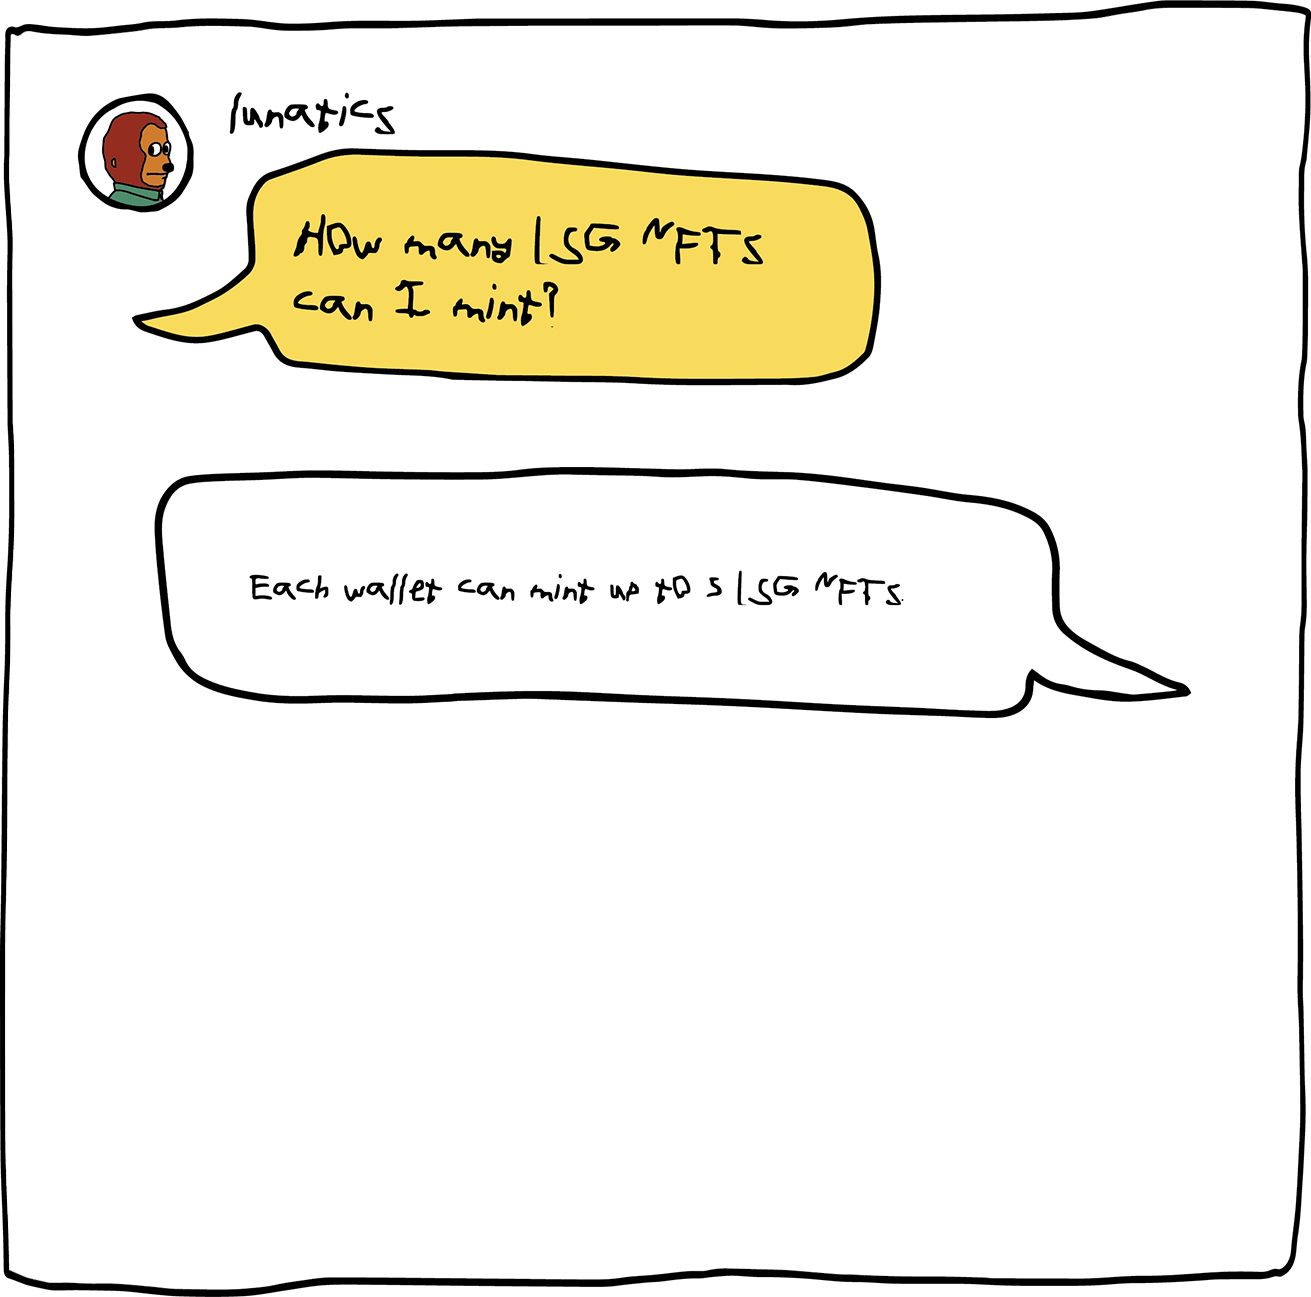 lunatics
How many LSG NFTS
can I mint?
Each wallet can mint up to 5 LSG NFTS.